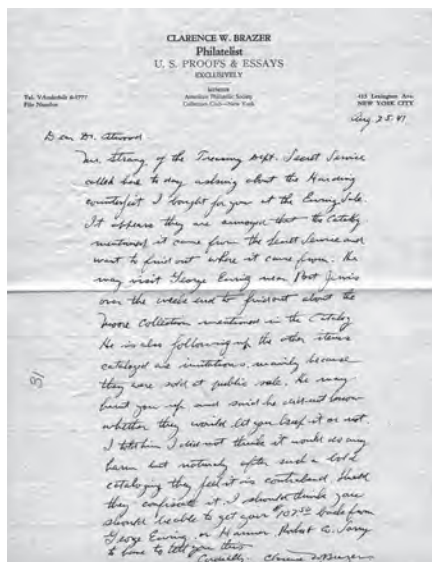 CLARENCE W. BRAZER
Philatelist
U. S. PROOFS & ESSAYS
EXCLUSIVELY
MEMBER
American Philatelic Society
Collectors Club—New York
Tel. VAnderbilt 6-3777
File Number
415 Lexington Ave.
NEW YORK CITY
Aug 28 '41
Dear Dr. Atwood
Mr. Strang of the Treasury Dept. Secret Service
called here to day asking about the Harding
counterfeit I bought for you at the Ewing Sale.
It appears they are annoyed that the Catalog
mentioned it came from the Secret Service and
want to find out where it came from. He
may visit George Ewing near Port Jervis
over the week end to find out about the
Moore Collection mentioned in the Catalog
He is also following up the other items
cataloged as imitations, mainly because
they were sold at public sale. He may
hunt you up and said he did not know
whether they would let you keep it or not.
I told him I did not think it would do any
harm but naturly after such a bold
cataloging they feel it is contraband. Should
they confiscate it I should think you
should be able to get your $107.50 back from
George Ewing or Harmer Rooke & Co. Sorry
to have to tell you this
Cordially Clarence W. Brazer